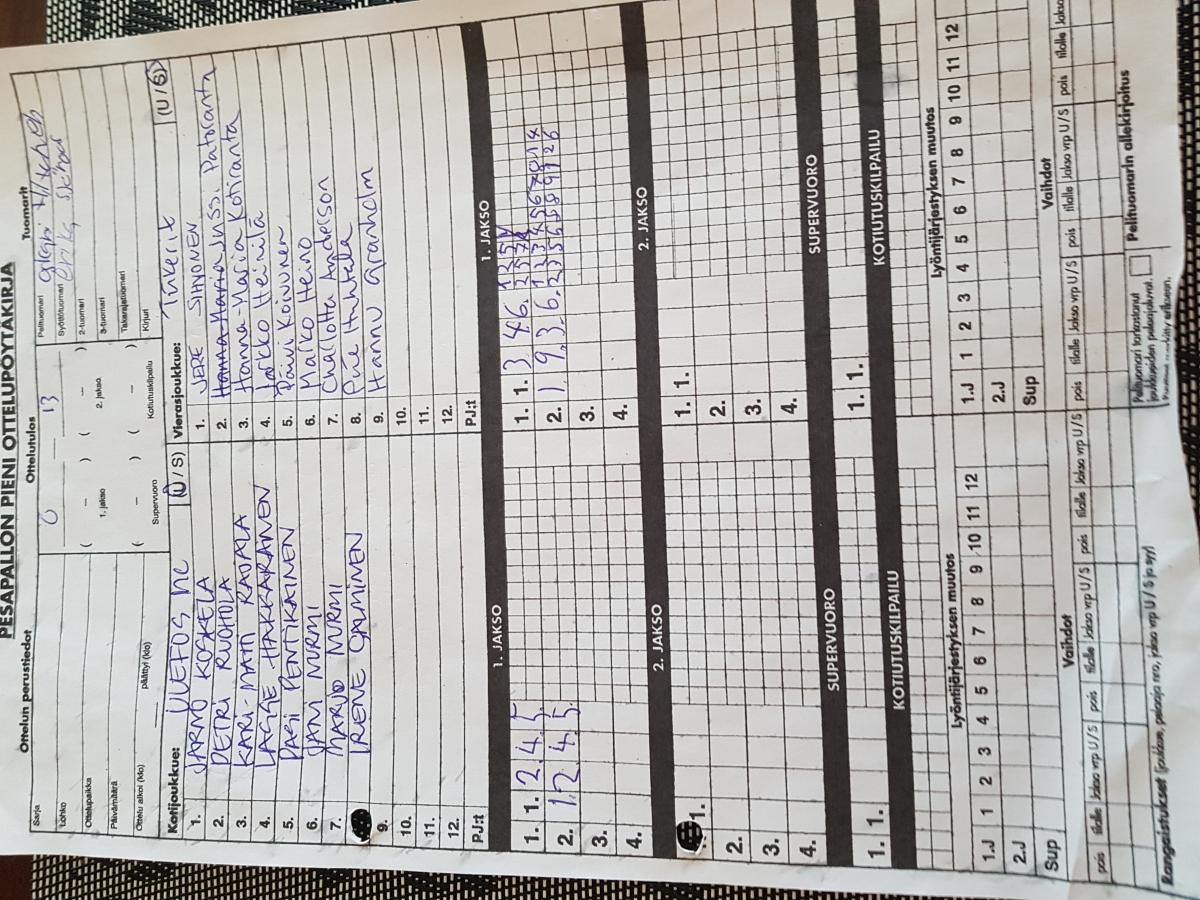 PESÄPALLON PIENI OTTELUPÖYTÄKIRJA
Ottelun perustiedot
Ottelutulos
Tuomarit
Sarja
0 — 13
Pelituomari
Lohko
Syöttötuomari
Ottelupaikka
( – ) ( – )
2-tuomari
Päivämäärä
1. jakso 2. jakso
3-tuomari
Ottelu alkoi (klo) päättyi (klo)
( – ) ( – )
Takarajatuomari
Supervuoro Kotiutuskilpailu
Kirjuri
Kotijoukkue: ULEFOS NC (U / S)
Vierasjoukkue: Tiikerit (U / S)
1. JARMO KOSKELA
1. JERE SIHVONEN
2. PETRI RUOHOLA
2. Hanna-Maria Jussi Patolanta
3. KARI-MATI RAJALA
3. Hanna-Maria Kotiranta
4. LASSE HAKKARAINEN
4. Jarkko Heinilä
5. PARI PENTIKAINEN
5. Päivi Koivunen
6. JANI NURMI
6. Marko Heino
7. MARJO NURMI
7. Challotta Anderson
IRENE
8. Piie Huhtala
9.
9. Hannu Granholm
10.
10.
11.
11.
12.
12.
PJ:t
PJ:t
1. JAKSO
1. JAKSO
1. 1. 2. 4. 5.
1. 1. 3 4 6.
2. 1. 2. 4. 5.
2. 1 9. 3. 6.
3.
3.
4.
4.
2. JAKSO
2. JAKSO
1.
1. 1.
2.
2.
3.
3.
4.
4.
SUPERVUORO
SUPERVUORO
1. 1.
1. 1.
KOTIUTUSKILPAILU
KOTIUTUSKILPAILU
Lyöntijärjestyksen muutos
Lyöntijärjestyksen muutos
1.J 1 2 3 4 5 6 7 8 9 10 11 12
1.J 1 2 3 4 5 6 7 8 9 10 11 12
2.J
2.J
Sup
Sup
Vaihdot
Vaihdot
pois tilalle Jakso vrp U / S pois tilalle Jakso vrp U / S pois tilalle Jakso vrp U / S
pois tilalle Jakso vrp U / S pois tilalle Jakso vrp U / S pois tilalle Jakso
Rangaistukset (joukkue, pelaaja nro, jakso vrp U / S ja syy)
Pelituomari tarkastanut
joukkueiden pelaajaluvat.
Pelituomarin allekirjoitus